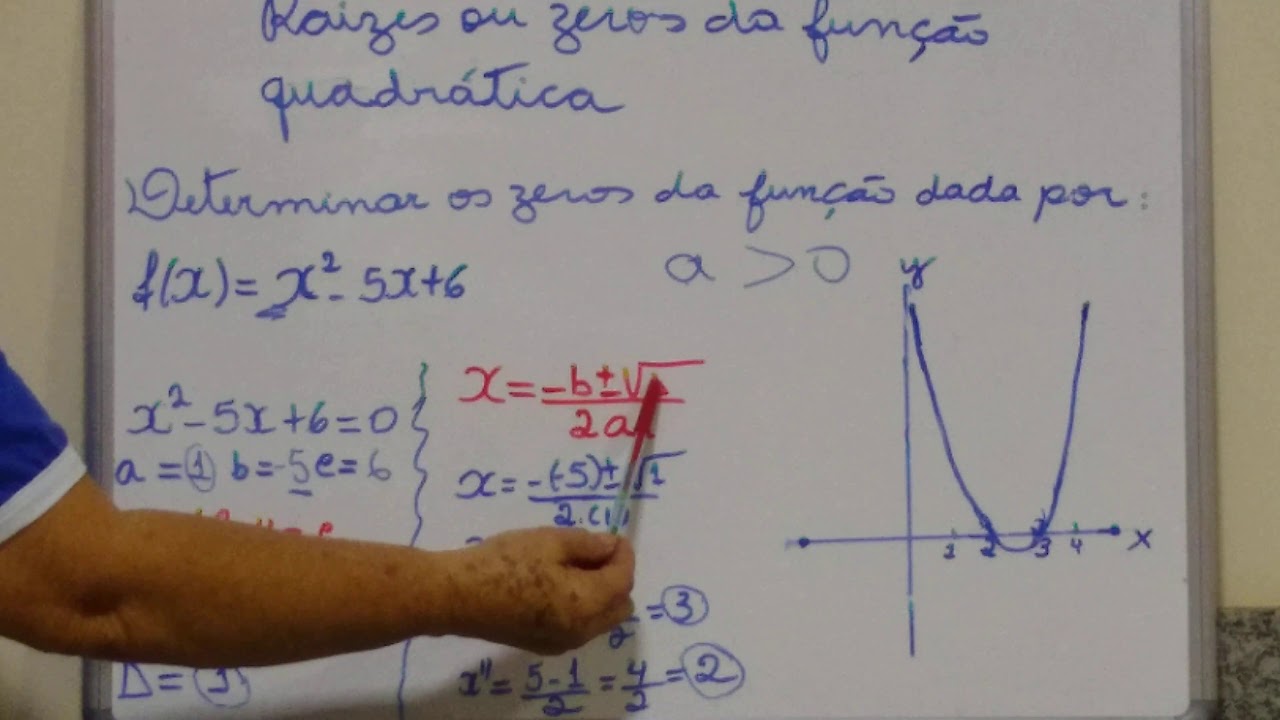 Raizes ou zeros da função
quadrática
Determinar os zeros da função dada por:
f(x)= x² - 5x+6
a > 0
x² - 5x + 6 = 0
a = 1 b = -5 c = 6
Δ = 1
x = -b ± √
2a
x = -(-5) ± √1
2.(1)
2 = 3
x" = 5-1/2 = 4/2 = 2
y
1 2 3 4 x